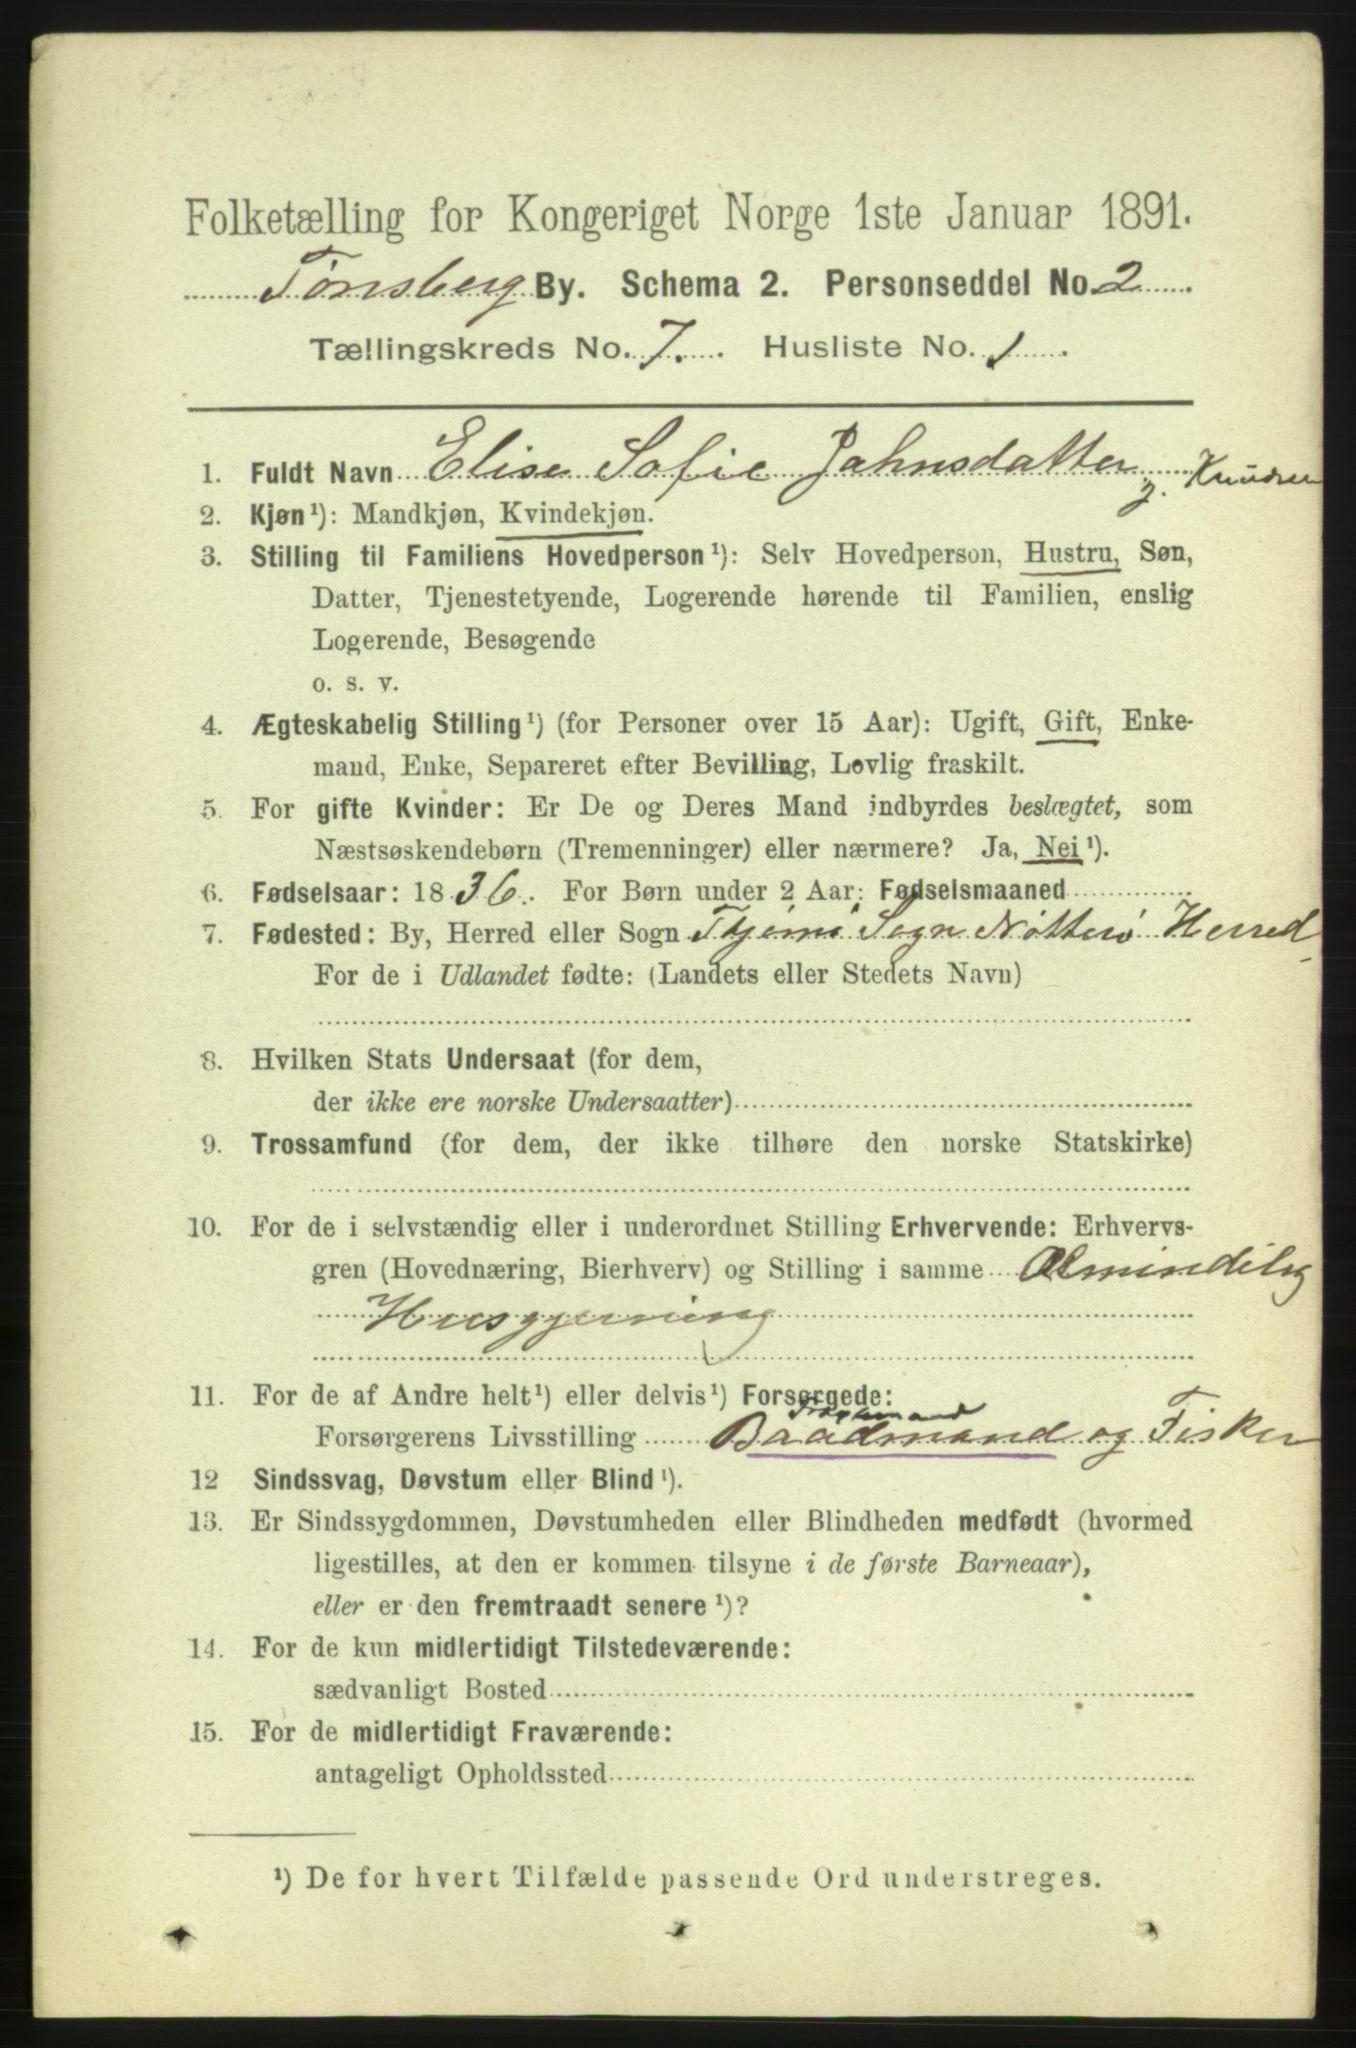 Folketælling for Kongeriget Norge 1ste Januar 1891.
Tønsberg By. Schema 2. Personseddel No. 2
Tællingskreds No. 7. Husliste No. 1
1. Fuldt Navn Elise Sofie Jahnsdatter g. Knudsen
2. Kjøn¹): Mandkjøn, Kvindekjøn.
3. Stilling til Familiens Hovedperson¹): Selv Hovedperson, Hustru, Søn,
Datter, Tjenestetyende, Logerende hørende til Familien, enslig
Logerende, Besøgende
o. s. v.
4. Ægteskabelig Stilling¹) (for Personer over 15 Aar): Ugift, Gift, Enke-
mand, Enke, Separeret efter Bevilling, Lovlig fraskilt.
5. For gifte Kvinder: Er De og Deres Mand indbyrdes beslægtet, som
Næstsøskendebørn (Tremenninger) eller nærmere? Ja, Nei¹).
6. Fødselsaar: 1836. For Børn under 2 Aar: Fødselsmaaned
7. Fødested: By, Herred eller Sogn Tjømø Sogn Nøtterø Herred
For de i Udlandet fødte: (Landets eller Stedets Navn)
8. Hvilken Stats Undersaat (for dem,
der ikke ere norske Undersaatter)
9. Trossamfund (for dem, der ikke tilhøre den norske Statskirke)
10. For de i selvstændig eller i underordnet Stilling Erhvervende: Erhvervs-
gren (Hovednæring, Bierhverv) og Stilling i samme Almindelig
Husgjerning
11. For de af Andre helt¹) eller delvis¹) Forsørgede:
Forsørgerens Livsstilling Baadmand og Fisker
12 Sindssvag, Døvstum eller Blind¹).
13. Er Sindssygdommen, Døvstumheden eller Blindheden medfødt (hvormed
ligestilles, at den er kommen tilsyne i de første Barneaar),
eller er den fremtraadt senere¹)?
14. For de kun midlertidigt Tilstedeværende:
sædvanligt Bosted
15. For de midlertidigt Fraværende:
antageligt Opholdssted
¹) De for hvert Tilfælde passende Ord understreges.